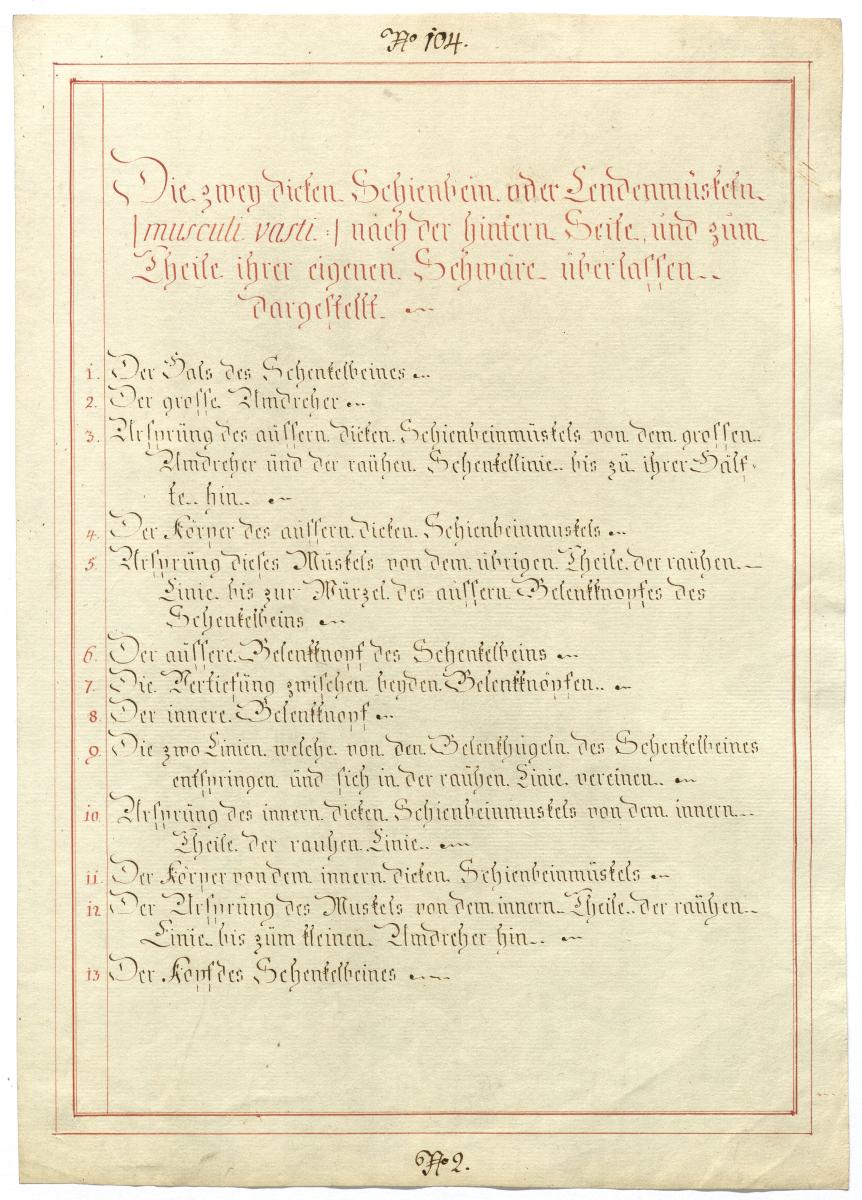 No 104.
Die zwey dicken Schienbein oder Lendenmuskeln
/ musculi vasti :/ nach der hintern Seite, und zum
Theile ihrer eigenen Schwäre überlassen
dargestellt.
1. Der Hals des Schenkelbeines
2. Der grosse Umdreher
3. Ursprung des aüssern dicken Schienbeinmuskels von dem grossen
Umdreher und der rauhen Schenkellinie bis zu ihrer Hälf-
te hin
4. Der Körper des aüssern dicken Schienbeinmuskels
5. Ursprung dieses Muskels von dem übrigen Theile der rauhen
Linie bis zur Würzel des aüssern Gelenkknopfes des
Schenkelbeins
6. Der aüssere Gelenkknopf des Schenkelbeins
7. Die Vertiefung zwischen beyden Gelenkknöpfen
8. Der innere Gelenkknopf
9. Die zwo Linien welche von den Gelenkhügeln des Schenkelbeines
entspringen und sich in der rauhen Linie vereinen
10. Ursprung des innern dicken Schienbeinmuskels von dem innern
Theile der rauhen Linie
11. Der Körper von dem innern dicken Schienbeinmuskels
12 Der Ursprung des Muskels von dem innern Theile der rauhen
Linie bis zum kleinen Umdreher hin
13 Der Kopf des Schenkelbeines
No 2.